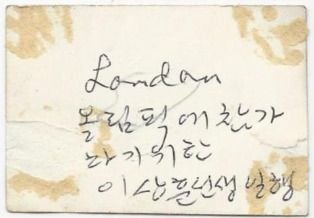 London
올림픽에 참가
하기위한
이상훈선생일행